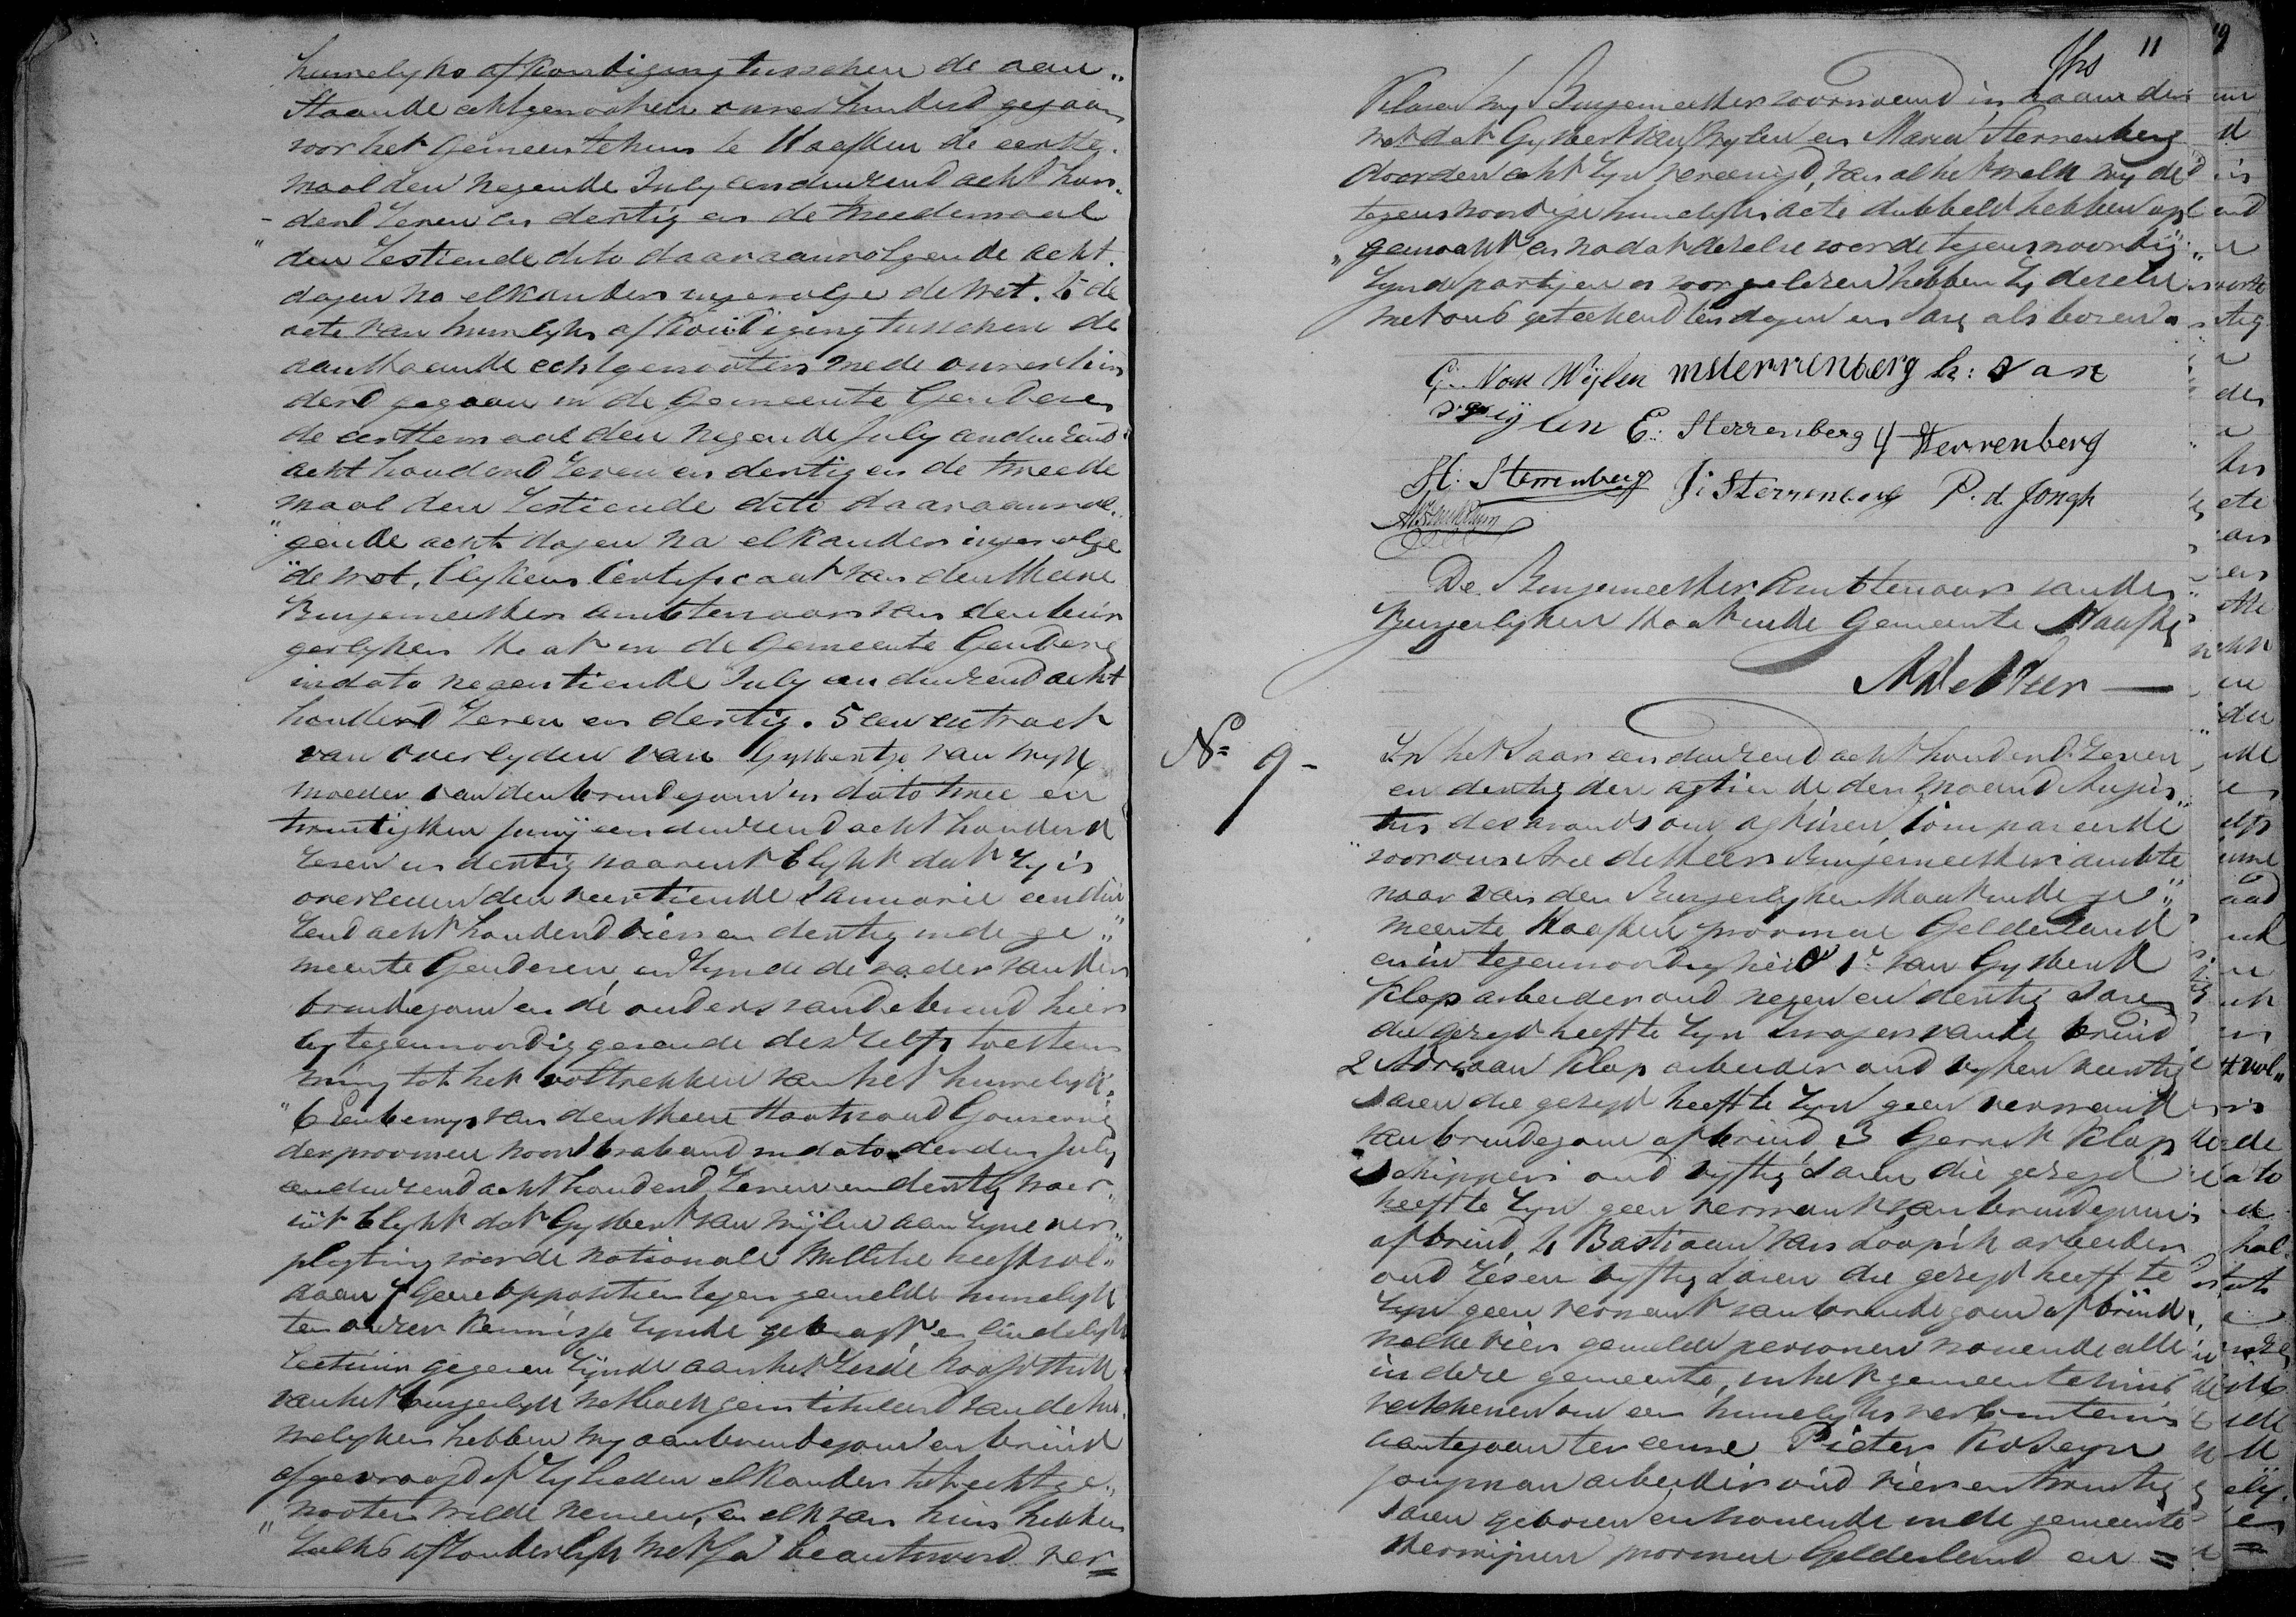 huwelyks afkondiging tusschen de aan„
staande echtgenooten onverhinderd gegaan
voor het Gemeentehuis te Haaften de eerste
maal den negende July eenduizend acht hon„
derd zeven en dertig en de tweedemaal
den zestiende dito daaraanvolgende acht
dagen na elkander ingevolge de wet. 4 de
acte van huwelyks afkondiging tusschen de
aanstaande echtgenooten mede onverhin
derd gegaan in de Gemeente Genderen
de eerstemaal den negende July eenduizend
acht honderd zeven en dertig en de tweede
maal den zestiende dito daaraanvol„
gende acht dagen na elkander ingevolge
de wet, blykens Certificaat van den Heere
Burgemeester ambtenaar van den bur
gerlyken staat in de Gemeente Genderen
in dato negentiende July eenduizend acht
honderd zeven en dertig. 5 een extract
van overlyden van Gysbertje van Wyk
moeder van den bruidegom in dato twee en
twintigsten Juny eenduizend acht honderd
zeven en dertig waaruit blykt dat zy is
overleden den veertiende Januarie eendui
zend acht honderd vier en dertig in de ge„
meente Genderen, en zynde de vader van den
bruidegom en de ouders van de bruid hier
by tegenwoordig gevende derzelfs toestem
ming tot het voltrekken van het huwelyk.
6 Een bewys van den Heere Staatsraad Gouverneur
der provincie Noordbraband in dato derden July
eenduizend acht honderd zeven en dertig waar„
uit blykt dat Gysbert van Wijlen aan zyne ver„
pligting voor de nationale Militie heeft vol„
daan 7 Geene oppositien tegen gemelde huwelyk
ten onzer kennisse zynde gebragt, en eindelyk
lectuur gegeven zynde aan het zesde hoofdstuk
van het burgerlyk wetboek geintituleerd van de hu„
welyken hebben wy aan bruidegom en bruid
afgevraagd of zylieden elkander tot echtge„
nooten wilde nemen, en elk van hun hebben
zulks afzonderlyk met Ja beantwoord ver=
11
Klaren wy Burgemeester voornoemd in naam der
wet dat Gysbert van Wylen en Maria Sterrenberg
door den echt zyn vereenigd, van al het welk wy de
tegenswoordige huwelyks acte dubbeld hebben op
gemaakt en nadat dezelve voor de tegenswoordig
zynde partyen is voorgelezen hebben zy dezelve
met ons geteekend ten dagen en Jare als boven
G. Van Wijlen MSterrenberg h: van
wijlen E: Sterrenberg Sterrenberg
H: Sterrenberg J: Sterrenberg P. d. Jongh
De Burgemeester Ambtenaar van den
Burgerlyken staat in de Gemeente Haaften
No 9-
In het Jaar eenduizend acht honderd zeven
en dertig den agtiende der maand Augus
tus des avonds om agt uren, Compareerde
voor ons de Heer Burgemeester ambte
naar van den Burgerlyken staat in de ge„
meente Haaften provincie Gelderland
en in tegenwoordigheid 1e van Gysbert
Klop arbeider oud negen en dertig Jaren
die gezegd heeft te zyn Zwager van de bruid
2 Adriaan Klop arbeider oud vyf en veertig
Jaren die gezegd heeft te zyn geen vermant
van bruidegom of bruid, 3 Gerrit Klop
schipper oud vyftig Jaren die gezegd
heeft te zyn geen vermant van bruidegom
of bruid, 4 Bastiaan van Loopik arbeider
oud zes en vyftig Jaren die gezegd heeft te
zyn geen vermant van bruidegom of bruid,
welke vier gemelde personen wonende alle
in deze gemeente, in het gemeentehuis
verschenen om een huwelyks verbintenis
aantegaan ter eenre Pieter Kosteyn
jongman arbeider oud vier en twintig
Jaren geboren en wonende in de gemeente
Herwijnen provincie Gelderland en =